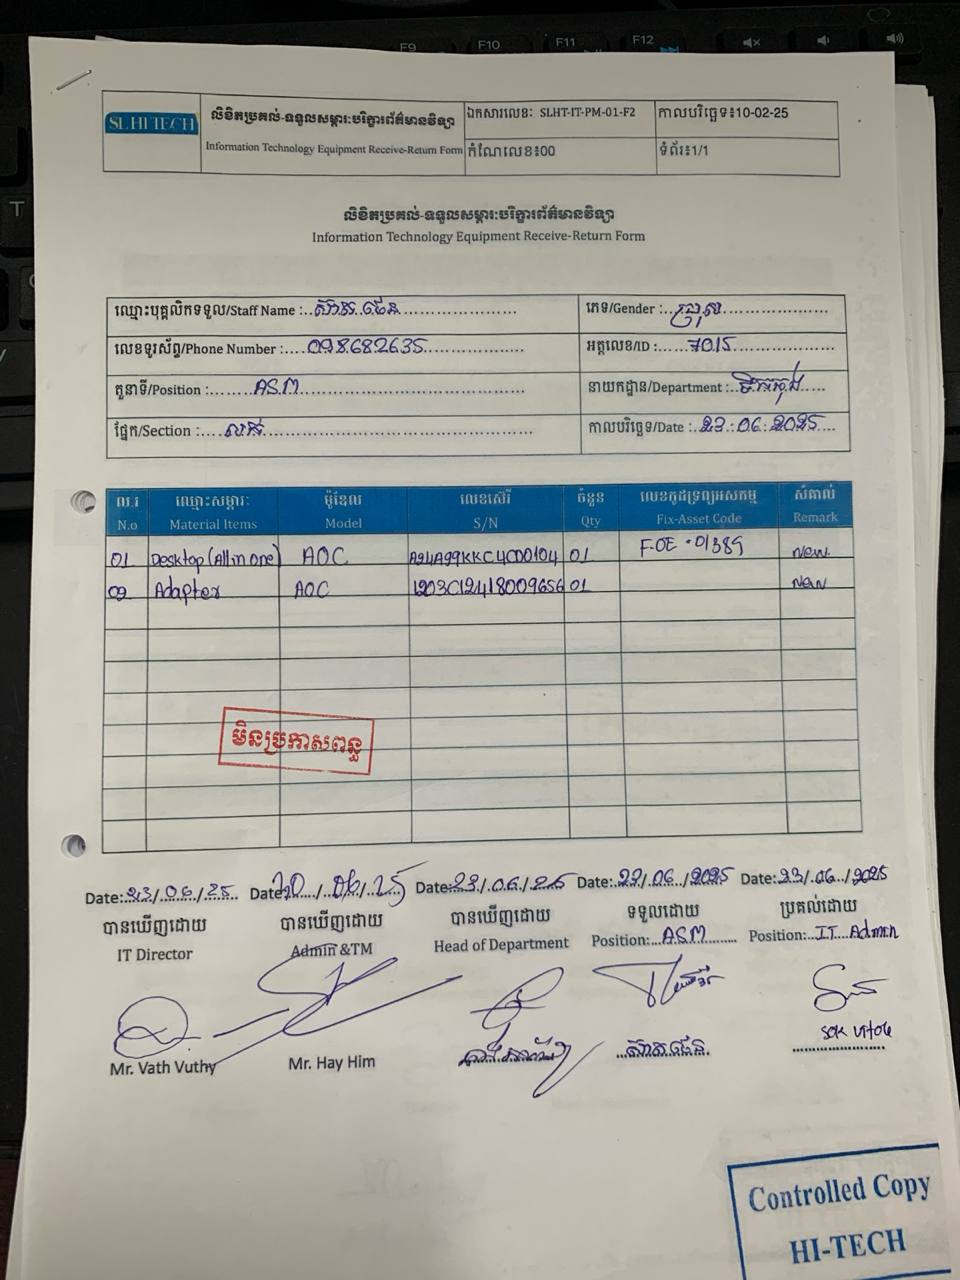 F9 F10 F11 F12
T
SLHI TECH
លិខិតប្រគល់-ទទួលសម្ភារៈបរិក្ខារព័ត៌មានវិទ្យា
Information Technology Equipment Receive-Return Form
ឯកសារលេខៈ SLHT-IT-PM-01-F2
កាលបរិច្ឆេទ៖10-02-25
កំណែលេខ៖00
ទំព័រ៖1/1
លិខិតប្រគល់-ទទួលសម្ភារៈបរិក្ខារព័ត៌មានវិទ្យា
Information Technology Equipment Receive-Return Form
ឈ្មោះបុគ្គលិកទទួល/Staff Name :
ភេទ/Gender : ប្រុស
លេខទូរស័ព្ទ/Phone Number : 098682635
អត្តលេខ/ID : 7015
តួនាទី/Position : ASM
នាយកដ្ឋាន/Department :
ផ្នែក/Section : លក់
កាលបរិច្ឆេទ/Date : 23.06.2025
ល.រ ឈ្មោះសម្ភារៈ ម៉ូឌែល លេខស៊េរី ចំនួន លេខកូដទ្រព្យអសកម្ម សំគាល់
N.o Material Items Model S/N Qty Fix-Asset Code Remark
01 Desktop (All in one) AOC A24A99KKC4CD0104 01 FOE-01389 New
02 Adapter AOC 1203C12418009656 01 New
មិនប្រកាសពន្ធ
Date: 23/06/25 Date: 20/06/25 Date: 23/06/25 Date: 22/06/2025 Date: 23/06/2025
បានឃើញដោយ បានឃើញដោយ បានឃើញដោយ ទទួលដោយ ប្រគល់ដោយ
IT Director Admin &TM Head of Department Position: ASM Position: IT Admin
Mr. Vath Vuthy Mr. Hay Him
Controlled Copy
HI-TECH